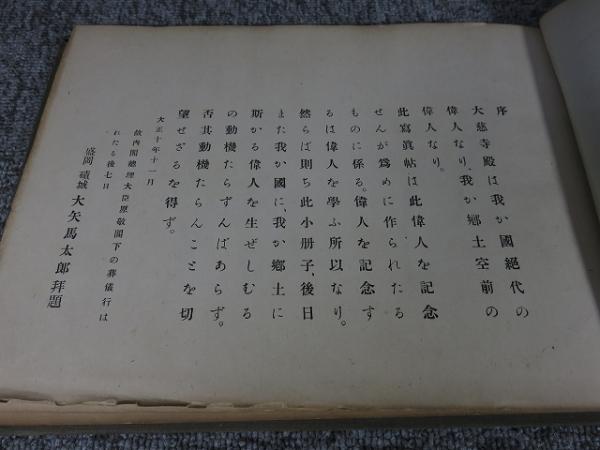 序
大慈寺殿は我か國絕代の
偉人なり、我か鄕土空前の
偉人なり。
此寫眞帖は此偉人を記念
せんが爲めに作られたる
ものに係る。偉人を記念す
るは偉人を學ふ所以なり。
然らば則ち此小册子、後日
また我か國に、我か鄕土に
斯かる偉人を生ぜしむる
の動機たらずんばあらず。
否其動機たらんことを切
望せざるを得ず。
大正十年十一月
故內閣總理大臣原敬閣下の葬儀行は
れたる後七日
盛岡 磧城 大矢馬太郞拜題